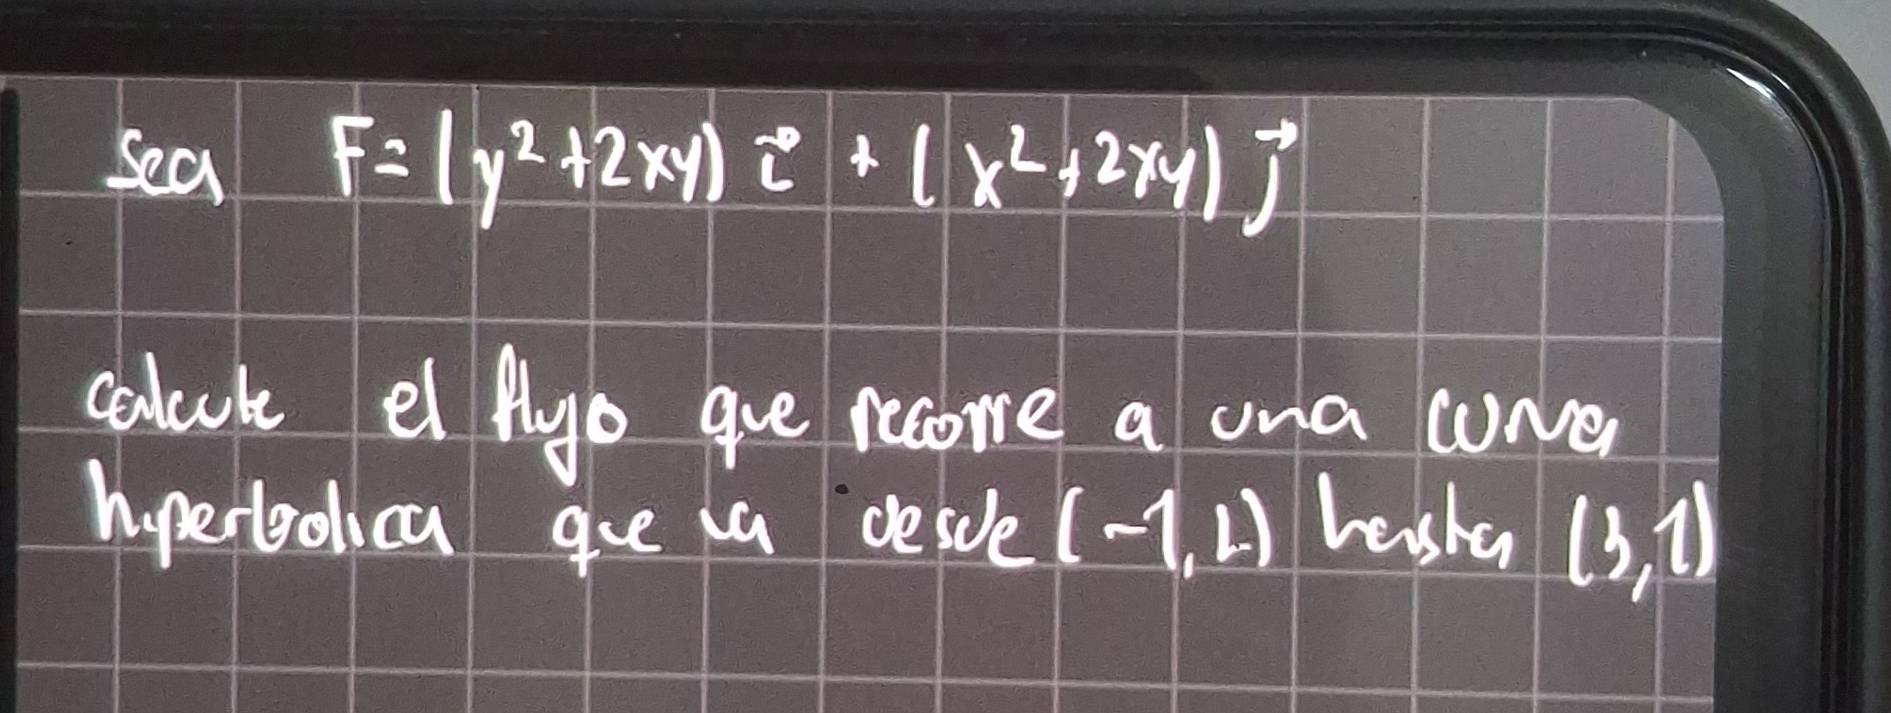 Sea F = (y²+2xy) i⃗ + (x²+2xy) j⃗
calcule el flujo que recorre a una curva
hiperbolica que va desde (-1, 2) hasta (3,1)